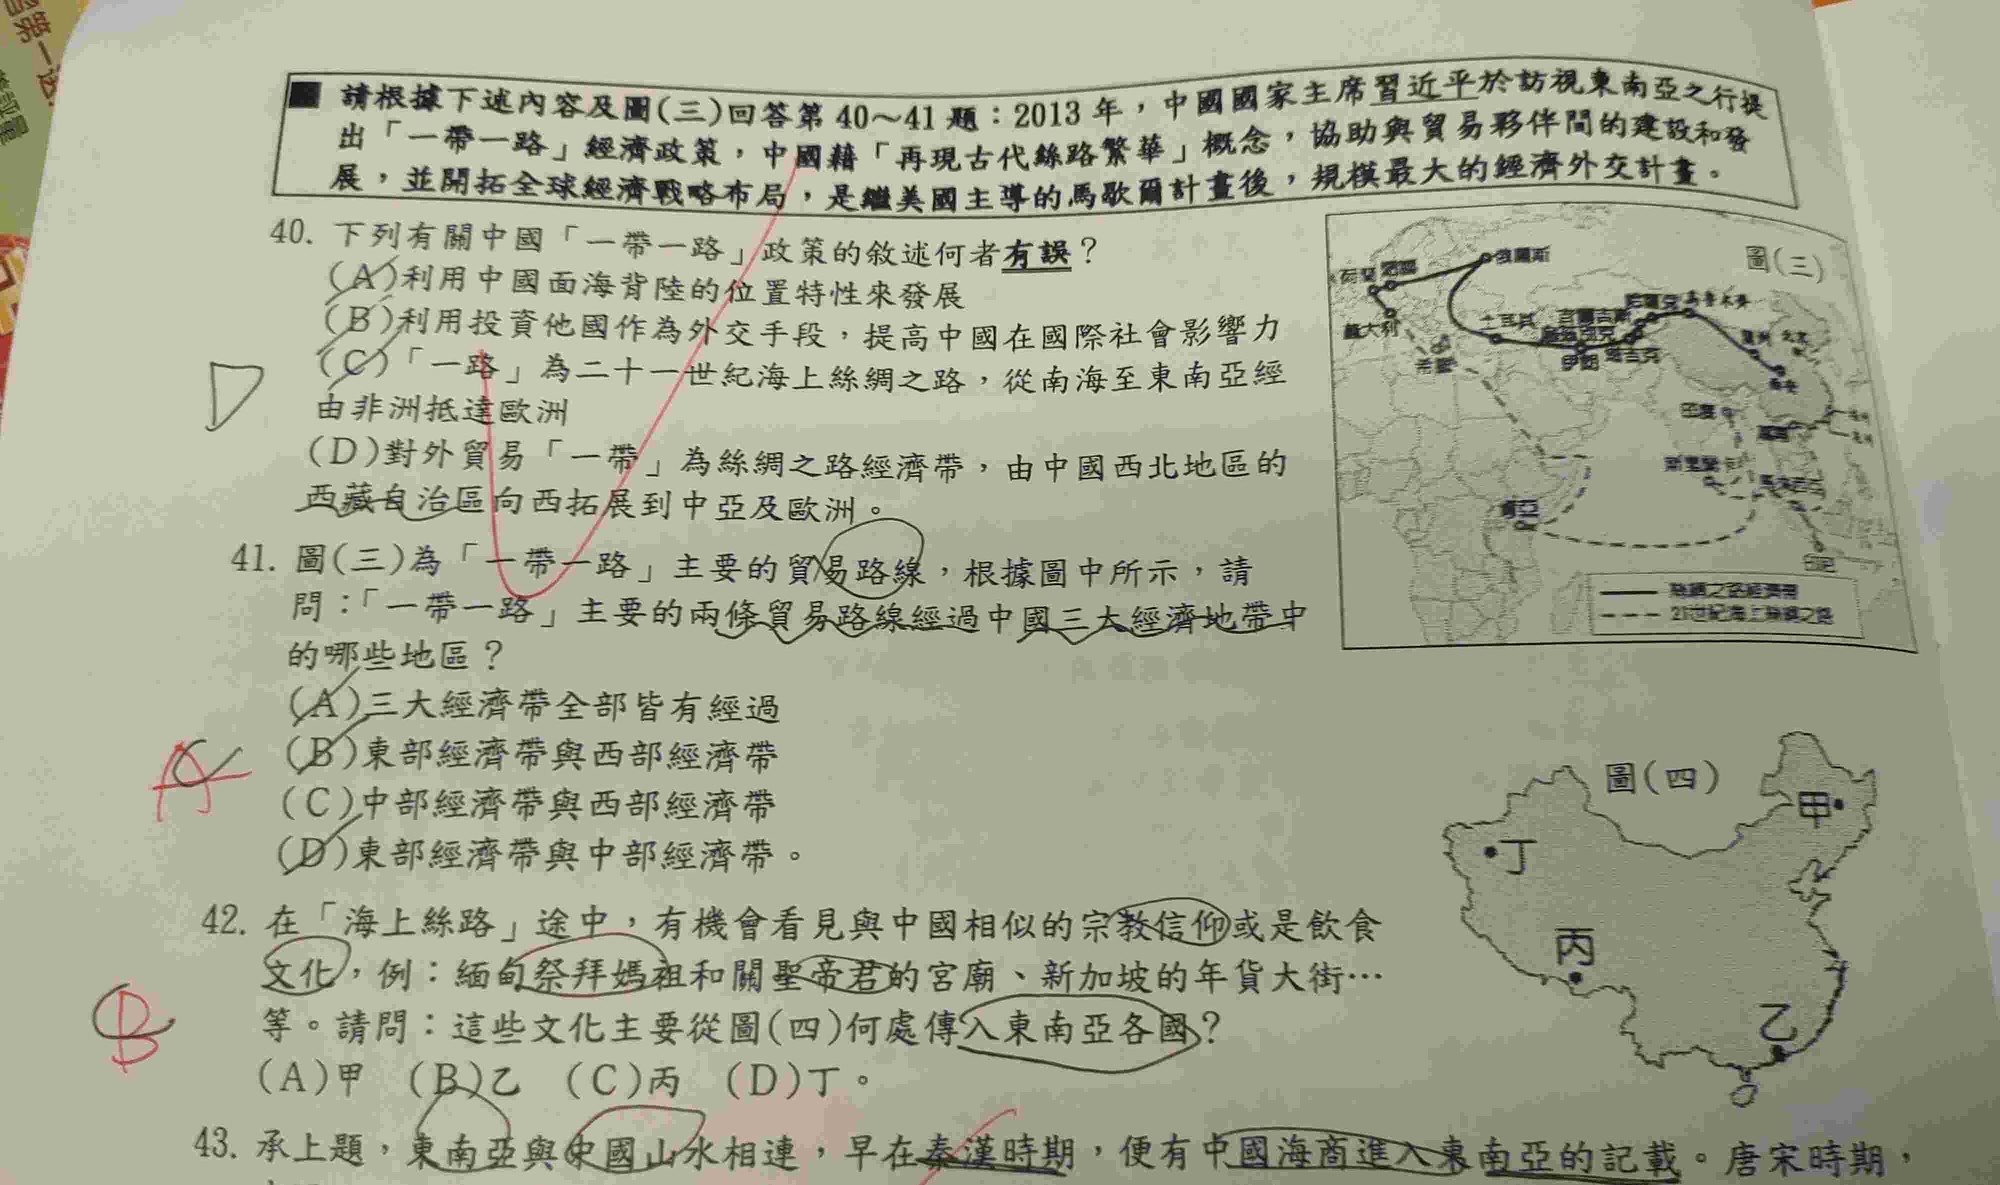 請根據下述內容及圖(三)回答第40～41題：2013年，中國國家主席習近平於訪視東南亞之行提
出「一帶一路」經濟政策，中國藉「再現古代絲路繁華」概念，協助與貿易夥伴間的建設和發
展，並開拓全球經濟戰略布局，是繼美國主導的馬歇爾計畫後，規模最大的經濟外交計畫。
40. 下列有關中國「一帶一路」政策的敘述何者有誤？
(A)利用中國面海背陸的位置特性來發展
(B)利用投資他國作為外交手段，提高中國在國際社會影響力
(C)「一路」為二十一世紀海上絲綢之路，從南海至東南亞經
由非洲抵達歐洲
D
(D)對外貿易「一帶」為絲綢之路經濟帶，由中國西北地區的
西藏自治區向西拓展到中亞及歐洲。
圖(三)
俄羅斯
荷蘭
德國
義大利
希臘
土耳其
吉爾吉斯
哈薩克
烏魯木齊
伊朗
塔吉克
蘭州
北京
西安
印度
越南
斯里蘭卡
馬來西亞
肯亞
印尼
絲綢之路經濟帶
21世紀海上絲綢之路
41. 圖(三)為「一帶一路」主要的貿易路線，根據圖中所示，請
問：「一帶一路」主要的兩條貿易路線經過中國三大經濟地帶中
的哪些地區？
(A)三大經濟帶全部皆有經過
(B)東部經濟帶與西部經濟帶
C
A
(C)中部經濟帶與西部經濟帶
(D)東部經濟帶與中部經濟帶。
42. 在「海上絲路」途中，有機會看見與中國相似的宗教信仰或是飲食
文化，例：緬甸祭拜媽祖和關聖帝君的宮廟、新加坡的年貨大街…
等。請問：這些文化主要從圖(四)何處傳入東南亞各國？
C
B
(A)甲 (B)乙 (C)丙 (D)丁。
圖(四)
甲
丁
丙
乙
43. 承上題，東南亞與中國山水相連，早在秦漢時期，便有中國海商進入東南亞的記載。唐宋時期，